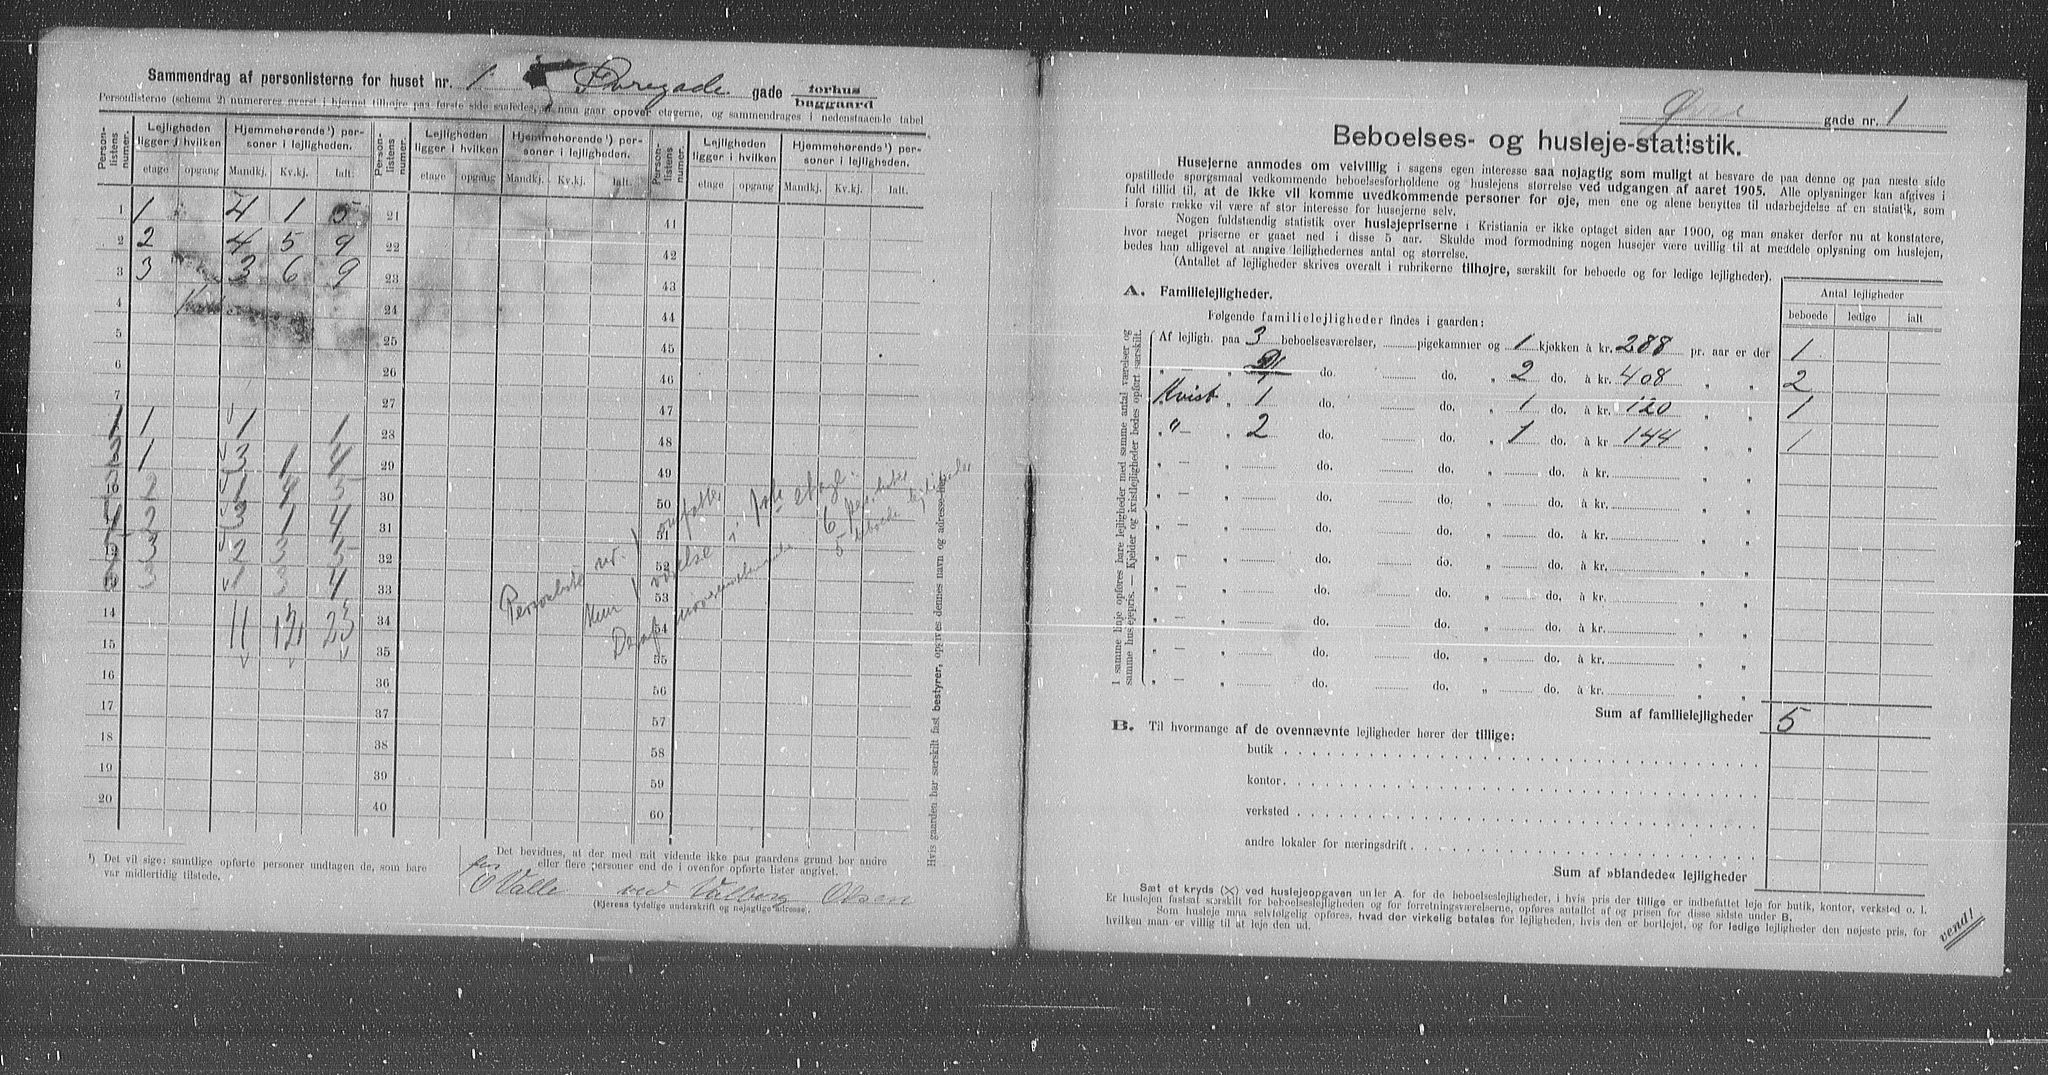 Sammendrag af personlisterne for huset nr. 1 Øvregade gade forhus baggaard
Personlisterne (schema 2) numereres øverst i hjørnet tilhøire paa første side saaledes, at man gaar opover etagerne, og sammendrages i nedenstaaende tabel
Person-listens numer. Lejligheden ligger i hvilken Hjemmehørende¹) personer i lejligheden. Person-listens numer. Lejligheden ligger i hvilken Hjemmehørende¹) personer i lejligheden. Person-listens numer. Lejligheden ligger i hvilken Hjemmehørende¹) personer i lejligheden.
etage opgang Mandkj. Kv.kj. Ialt. etage opgang Mandkj. Kv.kj. Ialt. etage opgang Mandkj. Kv.kj. Ialt.
1 1 4 1 5 21 41
2 2 4 5 9 22 42
3 3 3 6 9 23 43
4 24 44
5 25 45
6 26 46
7 27 47
1 1 1 1 23 48
2 1 3 1 4 29 49
10 2 1 4 5 30 50
4 2 3 1 4 31 51
12 3 2 3 5 32 52
13 3 1 3 4 33 53
14 11 12 23 34 54
15 35 55
16 36 56
17 37 57
18 38 58
19 39 59
20 40 60
Personliste nr. 1 omfatter
kun 1 værelse i 1ste etage.
6 pers.lister
5 beboede lejligheder
Hvis gaarden har særskilt fast bestyrer, opgives dennes navn og adresse her
¹) Det vil sige: samtlige opførte personer undtagen de, som bare
var midlertidig tilstede.
Det bevidnes, at der med mit vidende ikke paa gaardens grund bor andre
eller flere personer end de i ovenfor opførte lister angivet.
for O Valle ved Valborg Olsen
(Ejerens tydelige underskrift og nøjagtige adresse).
Øvre gade nr. 1
Beboelses- og husleje-statistik.
Husejerne anmodes om velvillig i sagens egen interesse saa nøjagtig som muligt at besvare de paa denne og paa næste side
opstillede spørgsmaal vedkommende beboelsesforholdene og huslejens størrelse ved udgangen af aaret 1905. Alle oplysninger kan afgives i
fuld tillid til, at de ikke vil komme uvedkommende personer for øje, men ene og alene benyttes til udarbejdelse af en statistik, som
i første række vil være af stor interesse for husejerne selv.
Nogen fuldstændig statistik over huslejepriserne i Kristiania er ikke optaget siden aar 1900, og man ønsker derfor nu at konstatere,
hvor meget priserne er gaaet ned i disse 5 aar. Skulde mod formodning nogen husejer være uvillig til at meddele oplysning om huslejen,
bedes han alligevel at angive lejlighedernes antal og størrelse.
(Antallet af lejligheder skrives overalt i rubrikerne tilhøjre, særskilt for beboede og for ledige lejligheder).
A. Familielejligheder.
Antal lejligheder
Følgende familielejligheder findes i gaarden:
beboede ledige ialt
I samme linje opføres bare lejligheder med samme antal værelser og
samme husejepris. — Kjelder og kvistlejligheder bedes opført særskilt.
Af lejligh. paa 3 beboelsesværelser, pigekammer og 1 kjøkken à kr. 288 pr. aar er der 1
„ — „ do. do. „ 2 do. à kr. 408 „ „ 2
Kvist „ 1 do. do. „ 1 do. à kr. 120 „ „ 1
„ „ — „ 2 do. do. „ 1 do. à kr 144 „ „ 1
„ — „ do. do. „ do. à kr. „ „
„ — „ do. do. „ do. à kr. „ „
„ — „ do. do. „ do. à kr. „ „
„ — „ do. do. „ do. à kr. „ „
„ — „ do. do. „ do. à kr. „ „
„ — „ do. do. „ do. à kr. „ „
„ — „ do. do. „ do. à kr. „ „
„ — „ do. do. „ do. à kr. „ „
Sum af familielejligheder 5
B. Til hvormange af de ovennævnte lejligheder hører der tillige:
butik
kontor
verksted
andre lokaler for næringsdrift
Sum af »blandede« lejligheder
Sæt et kryds (X) ved huslejeopgaven under A for de beboelseslejligheder, i hvis pris der tillige er indbefattet leje for butik, kontor, verksted o. l.
Er huslejen fastsat særskilt for beboelseslejligheden og for forretningsværelserne, opføres antallet af og prisen for disse sidste under B.
Som husleje maa selvfølgelig opføres, hvad der virkelig betales for lejligheden, hvis den er bortlejet, og for ledige lejligheder den nøjeste pris, for
hvilken man er villig til at leje den ud.
vend!